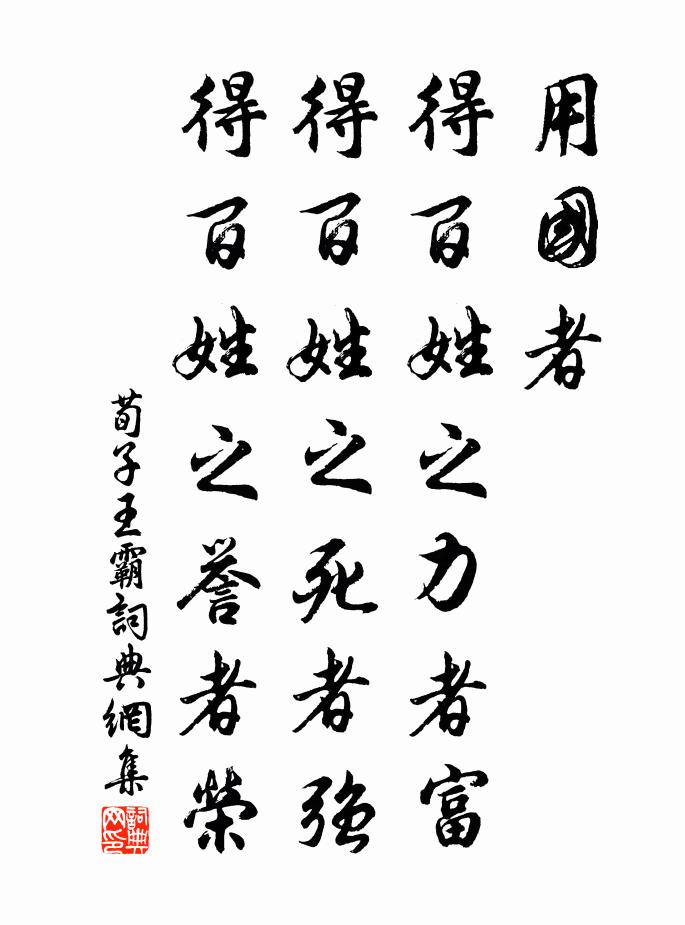 用國者
得百姓之力者富
得百姓之死者強
得百姓之誉者榮
荀子王霸詞典網集
詞典网印